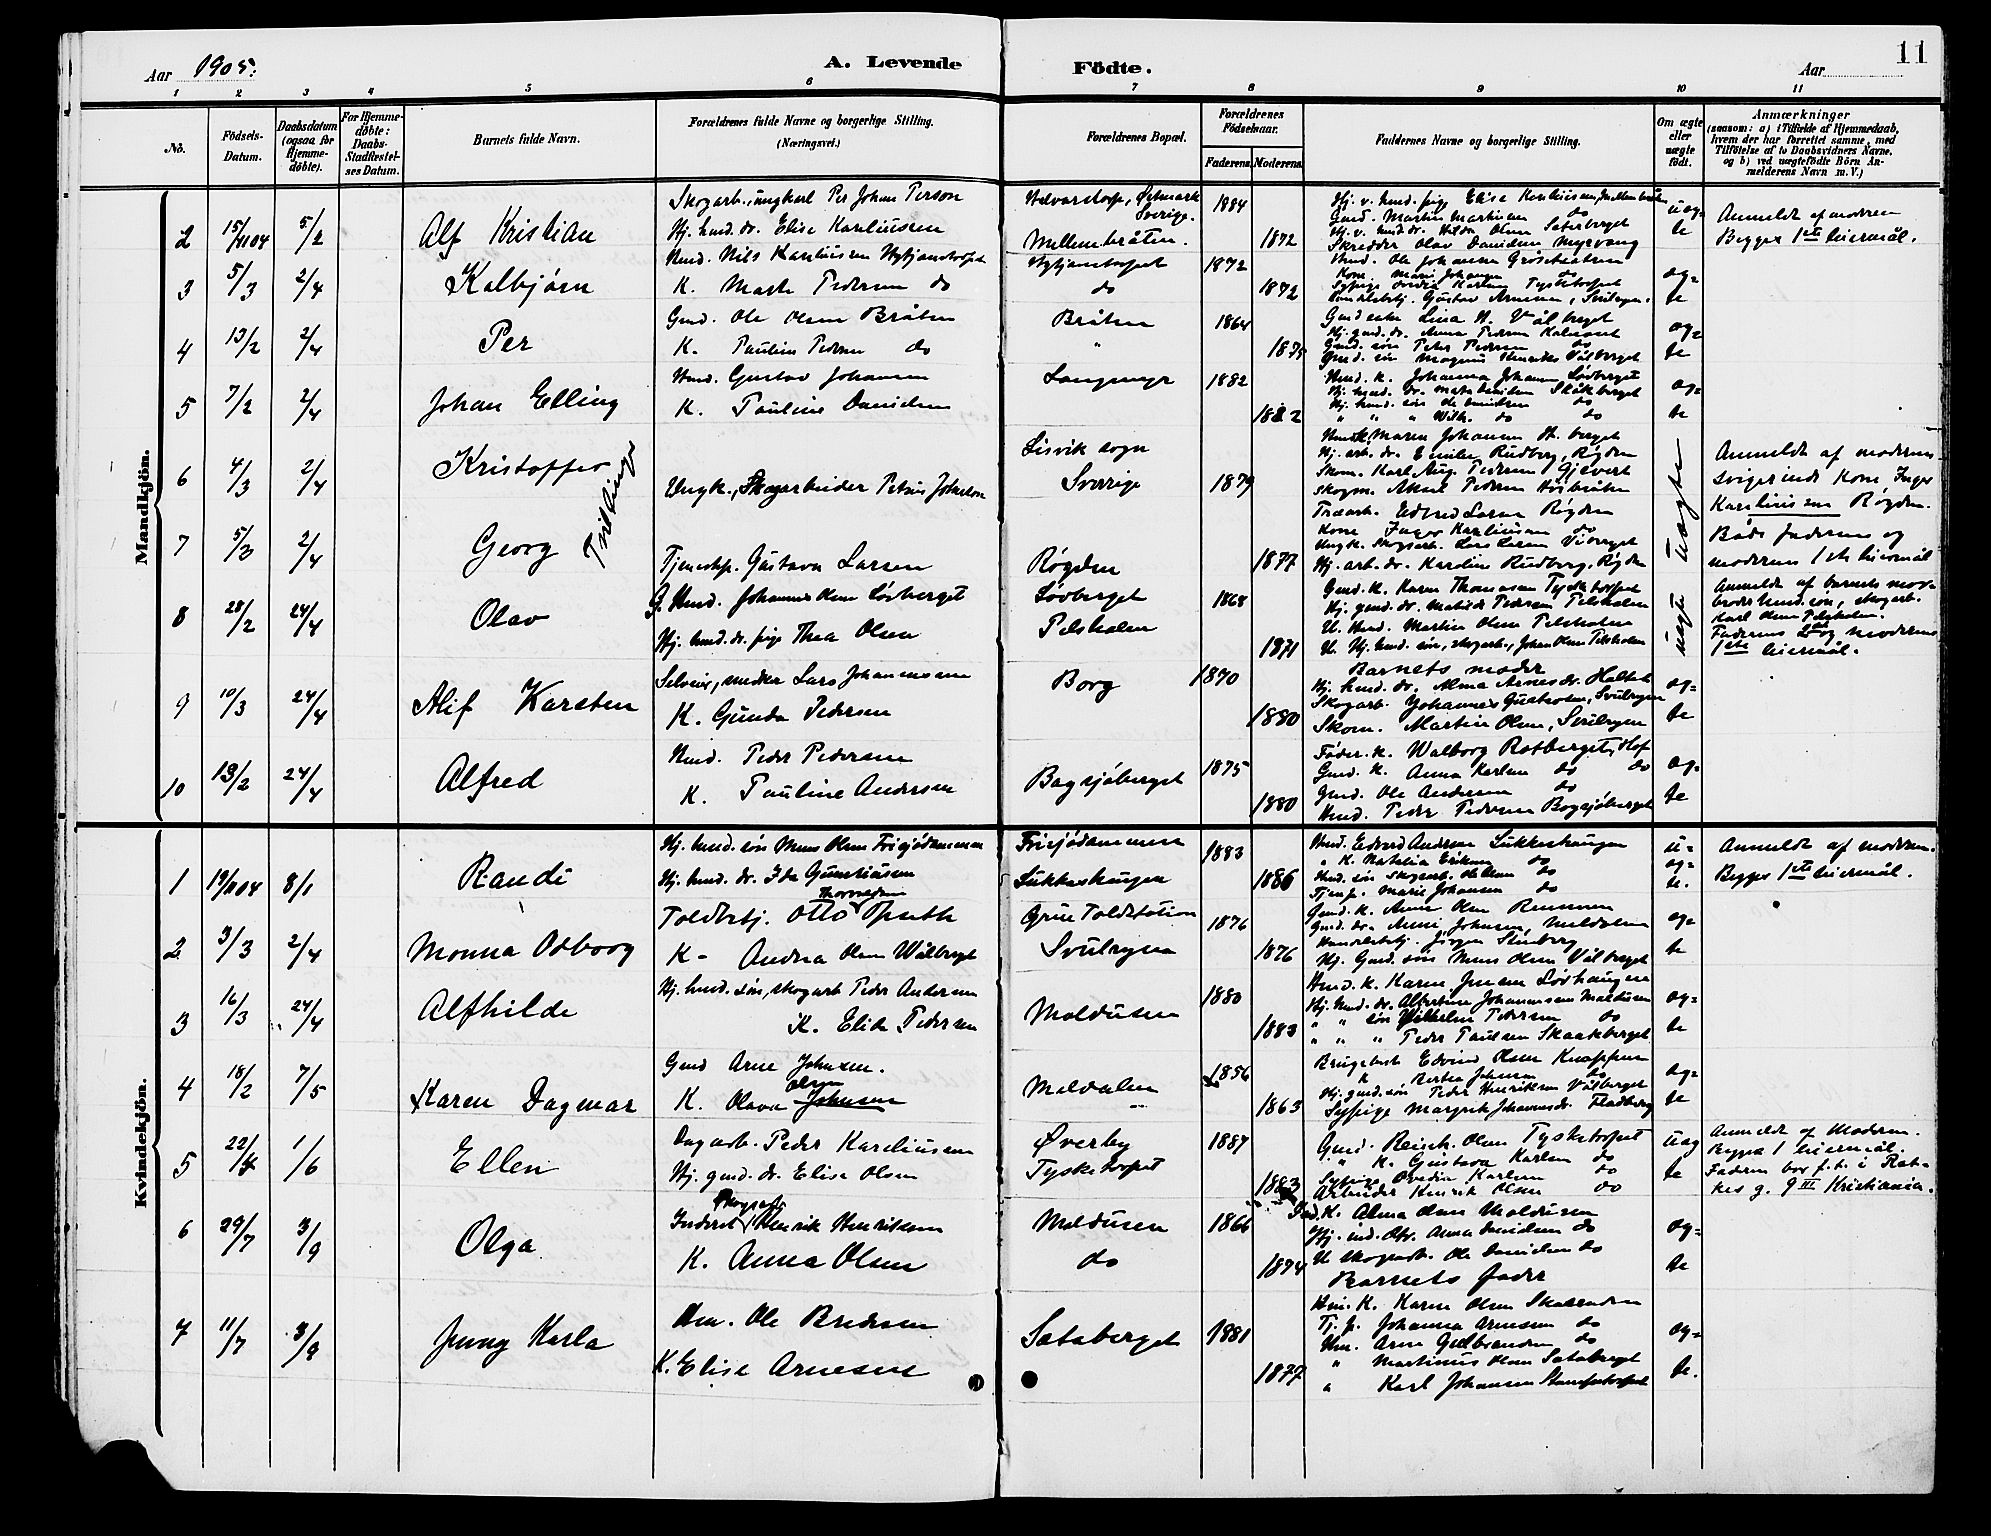 Aar 1905.
A. Levende
Födte.
Aar
11
1 2 3 4 5 6 7 8 9 10 11
No.
Födsels-Datum.
Daabsdatum (ogsaa for Hjemme-döbte).
For Hjemme-döbte: Daabs-Stadfæstel-ses Datum.
Barnets fulde Navn.
Forældrenes fulde Navne og borgerlige Stilling. (Næringsvei.)
Forældrenes Bopæl.
Forældrenes Födselsaar.
Faderens. Moderens.
Faddernes Navne og borgerlige Stilling.
Om ægte eller uægte födt.
Anmærkninger
(saasom: a) i Tilfælde af Hjemmedaab, hvem der har forrettet samme, med Tilföielse af to Daabsvidners Navne, og b) ved uægtefödte Börn Anmelderens Navn m. V.)
Mandkjön.
2 15/11 04 5/2 Alf Kristian
Skogarb., ungkarl Per Johan Person
Hj. husd. dr. Elise Karliussen
Sverige.
Mellembråten.
1884
1872
Hj. v. husd. pige Elise Karliussen, Mellembråten
Gmd. Martin Martinsen do
Skrædder Olav Danielsen Myrvang
uæg=
te
Anmeldt af moderen
Begges 1ste leiermål.
3 5/3 2/4 Kolbjørn
Husd. Nils Karliussen
K. Marte Pedersen do
do
1872
1872
Husd. Ole Johansen
Kone Marie Johansen do
Sypige
æg=
te
4 13/2 2/4 Per
Gmd. Ole Olsen Bråten
K. Pauline Pedersen do
Bråten
"
1864
1875
Gmd enke Lina H. Vålberget
Hj. gmd. dr. Anna Pedersen
Gmd. søn Peter Pedersen do
Gmd. søn Magnus Henriksen Vålberget
æg=
te
5 7/2 2/4 Johan Elling
Husd. Gustav Johansen
K. Pauline Danielsen
Langmyr
1882
1882
Husd. K. Johanna Johansen Løvberget
Hj. husd. dr. Marte Danielsen Skåkberget
Hj. husd. søn Ole Danielsen do
" " " Wilh. do do
æg=
te
6 4/3 2/4 Kristoffer
Tvillinger
Ungk., Skogarbeider Petrus Johnson
Lisvik sogn
Sverige
1879
Husd. K. Maren Johansen
Hj. arb. dr. Emilie Rudberg, Røgden
Skom. Karl Aug. Pedersen
Skogm. Aksel Pedersen
uægte
Anmeldt af moderens
svigerinde Kone, Inger
Karliussen Røgden.
7 5/3 2/4 Georg
Tjenestep. Gustava Larsen
Røgden
1877
Edvard Larsen Røgden
Kone Inger Karliussen do
Ungk. skogsarb. Lars Larsen
Hj. arb. dr. Karoline Rudberg, Røgden
Både faderens og
moderens 1ste leiermål
8 28/2 24/4 Olav
G. Husd. Johannes Olsen Løvberget
Hj. husd. dr. pige Thea Olsen
Løvberget
Pelsholen
1868
1871
Gmd. K. Karen Thomassen Tysketorpet
Hj. gmd. dr. Matilde Pedersen Pelsholen
U. Husd. Martin Olsen Pelsholen
U. Hj. husd. søn, skogarb., Johan Olsen Pelsholen
uægte
Anmeldt af barnets mor-
broder husd. søn, skogarb.
Karl Olsen Pelsholen.
Faderens 2det og moderens
1ste leiermål.
9 10/3 24/4 Alif Karsten
Selveier, snekker Lars Johannessen
K. Gunda Pedersen
Borg
1870
1880
Barnets moder
Hj. husd. dr. Alma Arnesdr. Haltet
Skogarb. Johannes Gustavsen, Svulryen
Skom. Martin Olsen, Svulryen
æg=
te
10 13/2 24/4 Alfred
Husd. Peder Pedersen
K. Pauline Andersen
Bagsjøberget
1875
1880
Føder. K. Walborg Rotberget, Hof
Gmd. K. Anna Karlsen do do
Gmd. Ole Andersen do
Husd. Peder Pedersen Bagsjøberget
æg=
te
Kvindekjön.
1 19/11 04 8/1 Randi
Hj. husd. søn Mens Olsen Frisjødammen
Hj. husd. dr. Ida Gundersen
Frisjødammen
Lukkashaugen
1883
1886
Husd. Edvard Andersen Lukkashaugen
" K. Natalia Eriksen do
Husd. søn skogarb. Ole Olsen do
Tjenp. Marie Johansen do
u-
æg=
te.
Anmeldt af moderen.
Begges 1ste leiermål.
2 3/3 2/4 Monna Osborg
Toldbetj. Otto Opseth
K- Andrea Olsen Wålberget
Grue Toldstation
Svulryen
1876
1876
Gmd. K. Anne Olsen
Gmd. dr. Anne Johnsen, Meldalen
Jørgen Stenberg
Hj. Gmd. søn Mens Olsen Vålberget
æg=
te
3 16/3 24/4 Alfhilde
Hj. husd. søn, skogarb Peder Andersen
K. Elise Pedersen
Moldusen
1880
1883
Husd. K. Karen Jensen Løvhaugen
Hj. husd. dr. Albertine Johannessen Moldusen
" " søn Wilhelm Pedersen do
" " " Peder Paulsen Skaakberget
æg=
te
4 18/2 7/5 Karen Dagmar
Gmd Arne Johnsen.
Olsen
K. Olava Johnsen
Meldalen
1856
1863
Edvind Olsen
K Berthea Johnsen do
Hj. gmd. søn Peder Henriksen Vålberget
Sypige Margrete Johannesdr. Fladberg
æg=
te
5 22/4 1/6 Ellen
Dagarb. Peder Karliussen
Hj. gmd. dr. Elise Olsen
Øverby
Tysketorpet
1887
1883
Gmd. Reinh. Olsen Tysketorpet
" K. Gustava Karlsen do
Sypige Ovedia Karlsen do
Arbeider Henrik Olsen do
uæg
te
Anmeldt af Moderen.
Begges 1 leiermål.
Faderen bor f.t. i Rat-
kes g. 9 III Kristiania.
6 29/7 3/9 Olga
Skogarb
Inderst Henrik Henriksen
K. Anna Olsen
Moldusen
do
1866
1874
Ind. K. Alma Olsen Moldusen
Hj. ind. dtr. Anna Danielsen do
U skogarb. Ole Danielsen do
Barnets fader
æg=
te
7 11/7 3/9 Jenny Karla
Hm. Ole Bredesen
K. Elise Arnesen
Sætaberget
1881
1877
Hm. K. Karen Olsen
Tj. p. Johanna Arnesen do
Hm. Arne Gulbrandsen do
" Martinus Olsen Sætaberget
" Karl Johansen
æg=
te.